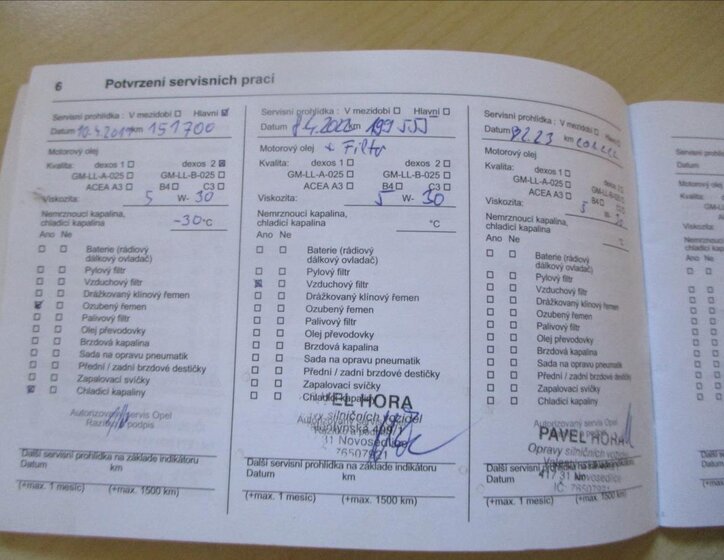 6 Potvrzení servisních prací
Servisní prohlídka : V mezidobí ☐ Hlavní ☑
Datum 10.4.2019 km 151700
Motorový olej
Kvalita: dexos 1 ☐ dexos 2 ☒
GM-LL-A-025 ☐ GM-LL-B-025 ☐
ACEA A3 ☐ B4 ☐ C3 ☐
Viskozita: 5 W- 30
Nemrznoucí kapalina,
chladicí kapalina -30 °C
Ano Ne
☐ ☐ Baterie (rádiový
dálkový ovladač)
☐ ☐ Pylový filtr
☐ ☐ Vzduchový filtr
☐ ☐ Drážkovaný klínový řemen
☑ ☐ Ozubený řemen
☐ ☐ Palivový filtr
☐ ☐ Olej převodovky
☐ ☐ Brzdová kapalina
☐ ☐ Sada na opravu pneumatik
☐ ☐ Přední / zadní brzdové destičky
☐ ☐ Zapalovací svíčky
☒ ☐ Chladicí kapaliny
Autorizovaný servis Opel
Razítko podpis
Další servisní prohlídka na základe indikátoru
Datum km
(+max. 1 mesíc) (+max. 1500 km)
Servisní prohlídka : V mezidobí ☐ Hlavní ☐
Datum 8.4.2022 km
Motorový olej + Filtr
Kvalita: dexos 1 ☐ dexos 2 ☐
GM-LL-A-025 ☐ GM-LL-B-025 ☐
ACEA A3 ☐ B4 ☐ C3 ☐
Viskozita: 5 W- 30
Nemrznoucí kapalina,
chladicí kapalina °C
Ano Ne
☐ ☐ Baterie (rádiový
dálkový ovladač)
☐ ☐ Pylový filtr
☒ ☐ Vzduchový filtr
☐ ☐ Drážkovaný klínový řemen
☐ ☐ Ozubený řemen
☐ ☐ Palivový filtr
☐ ☐ Olej převodovky
☐ ☐ Brzdová kapalina
☐ ☐ Sada na opravu pneumatik
☐ ☐ Přední / zadní brzdové destičky
☐ ☐ Zapalovací svíčky
☐ ☐ Chladicí kapaliny
EL HORA
silničních vozidel
Autorizovaný servis Opel
Novosedlice
76507921
Další servisní prohlídka na základe indikátoru
Datum km
(+max. 1 mesíc) (+max. 1500 km)
Servisní prohlídka : V mezidobí ☐ Hlavní ☐
Datum km
Motorový olej
Kvalita: dexos 1 ☐ dexos 2 ☐
GM-LL-A-025 ☐ GM-LL-B-025 ☐
ACEA A3 ☐ B4 ☐ C3 ☐
Viskozita: 5 W-
Nemrznoucí kapalina,
chladicí kapalina °C
Ano Ne
☐ ☐ Baterie (rádiový
dálkový ovladač)
☐ ☐ Pylový filtr
☐ ☐ Vzduchový filtr
☐ ☐ Drážkovaný klínový řemen
☐ ☐ Ozubený řemen
☐ ☐ Palivový filtr
☐ ☐ Olej převodovky
☐ ☐ Brzdová kapalina
☐ ☐ Sada na opravu pneumatik
☐ ☐ Přední / zadní brzdové destičky
☐ ☐ Zapalovací svíčky
☐ ☐ Chladicí kapaliny
Autorizovaný servis Opel
PAVEL HORA
Opravy silničních vozidel
Další servisní
Datum 417 31 Novosedlice
IČ: 76507921
(+max. 1 mesíc) (+max. 1500 km)
Servisní
Datum
Motorový ol
Kvalita:
GM-LL-A
ACE
Viskozita:
Nemrznoucí
chladicí kap
Ano Ne